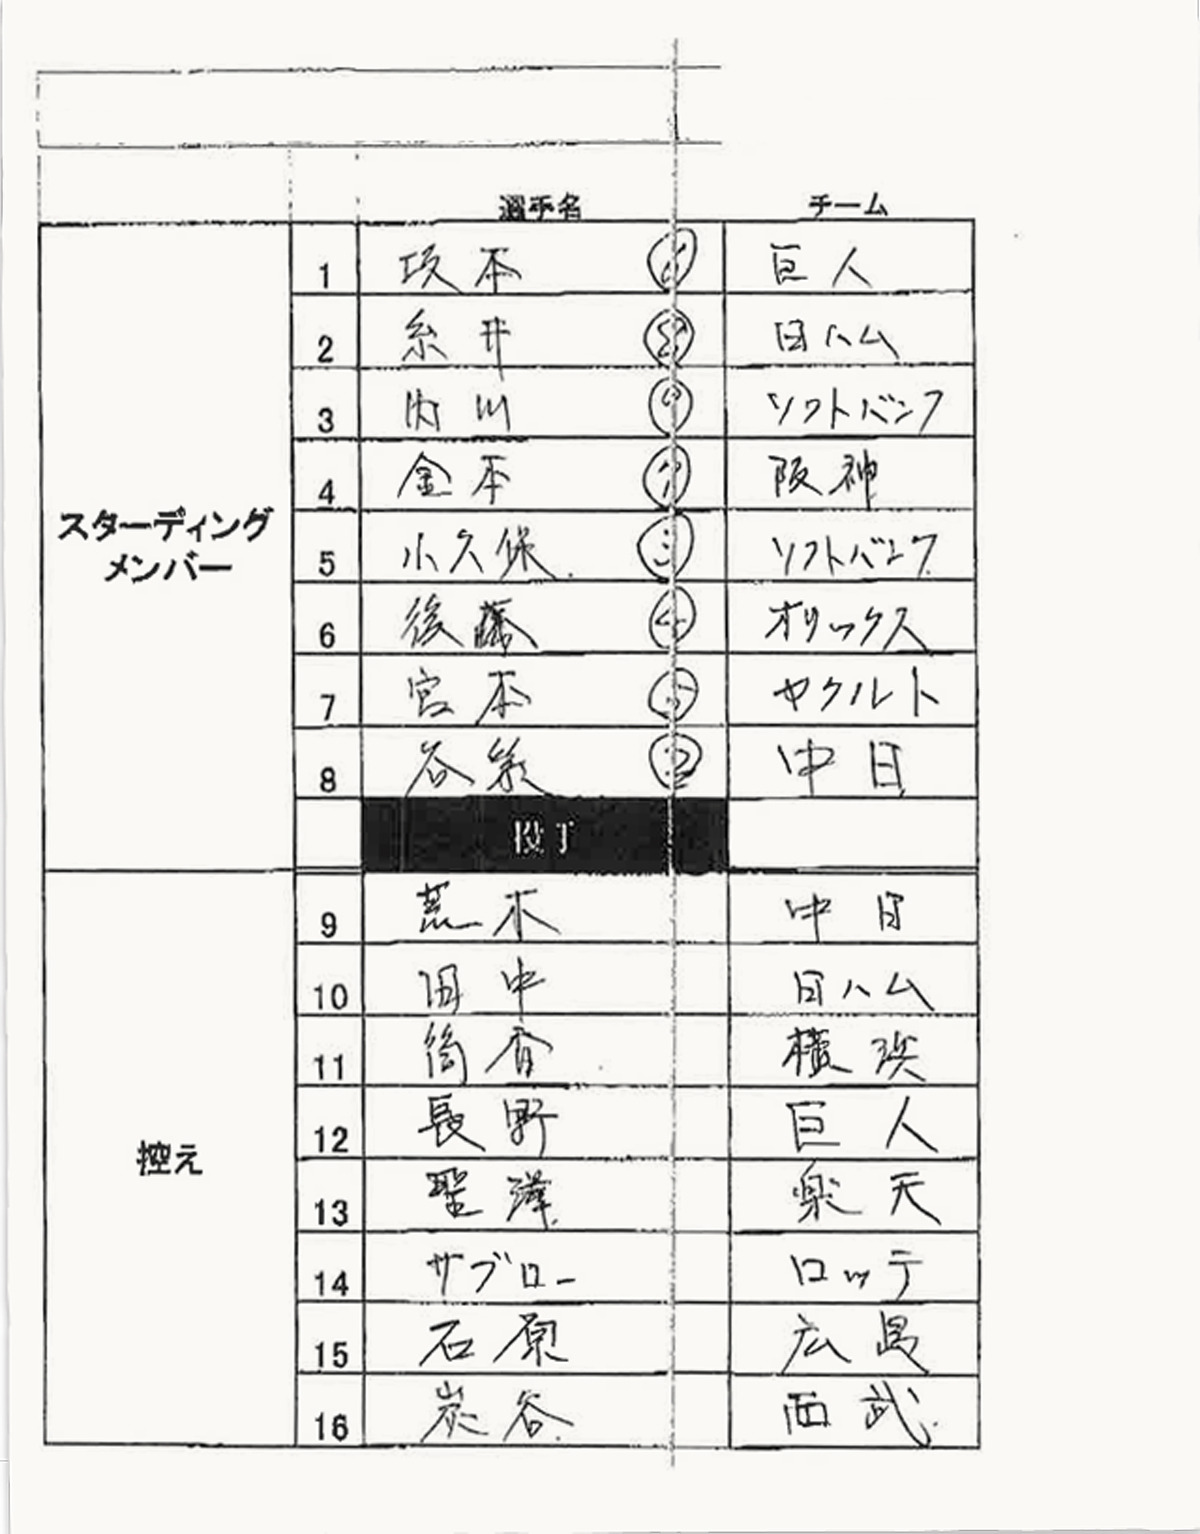 選手名 チーム
スターディング
メンバー
1 坂本 巨人
2 糸井 日ハム
3 内川 ソフトバンク
4 金本 阪神
5 小久保 ソフトバンク
6 後藤 オリックス
7 宮本 ヤクルト
8 谷繁 中日
投手
控え
9 荒木 中日
10 田中 日ハム
11 筒香 横浜
12 長野 巨人
13 聖澤 楽天
14 サブロー ロッテ
15 石原 広島
16 炭谷 西武